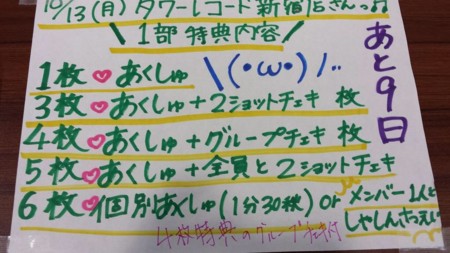 10/13(月)タワーレコード新宿店さんっ!!
1部 特典内容
あと9日
1枚♡あくしゅ
\(・ω・)/..
3枚♡あくしゅ+2ショットチェキ 枚
4枚♡あくしゅ+グループチェキ 枚
5枚♡あくしゅ+全員と2ショットチェキ
6枚♡個別あくしゅ(1分30秒) or メンバー1人と
しゃしんさつえい
4枚特典のグループチェキ付